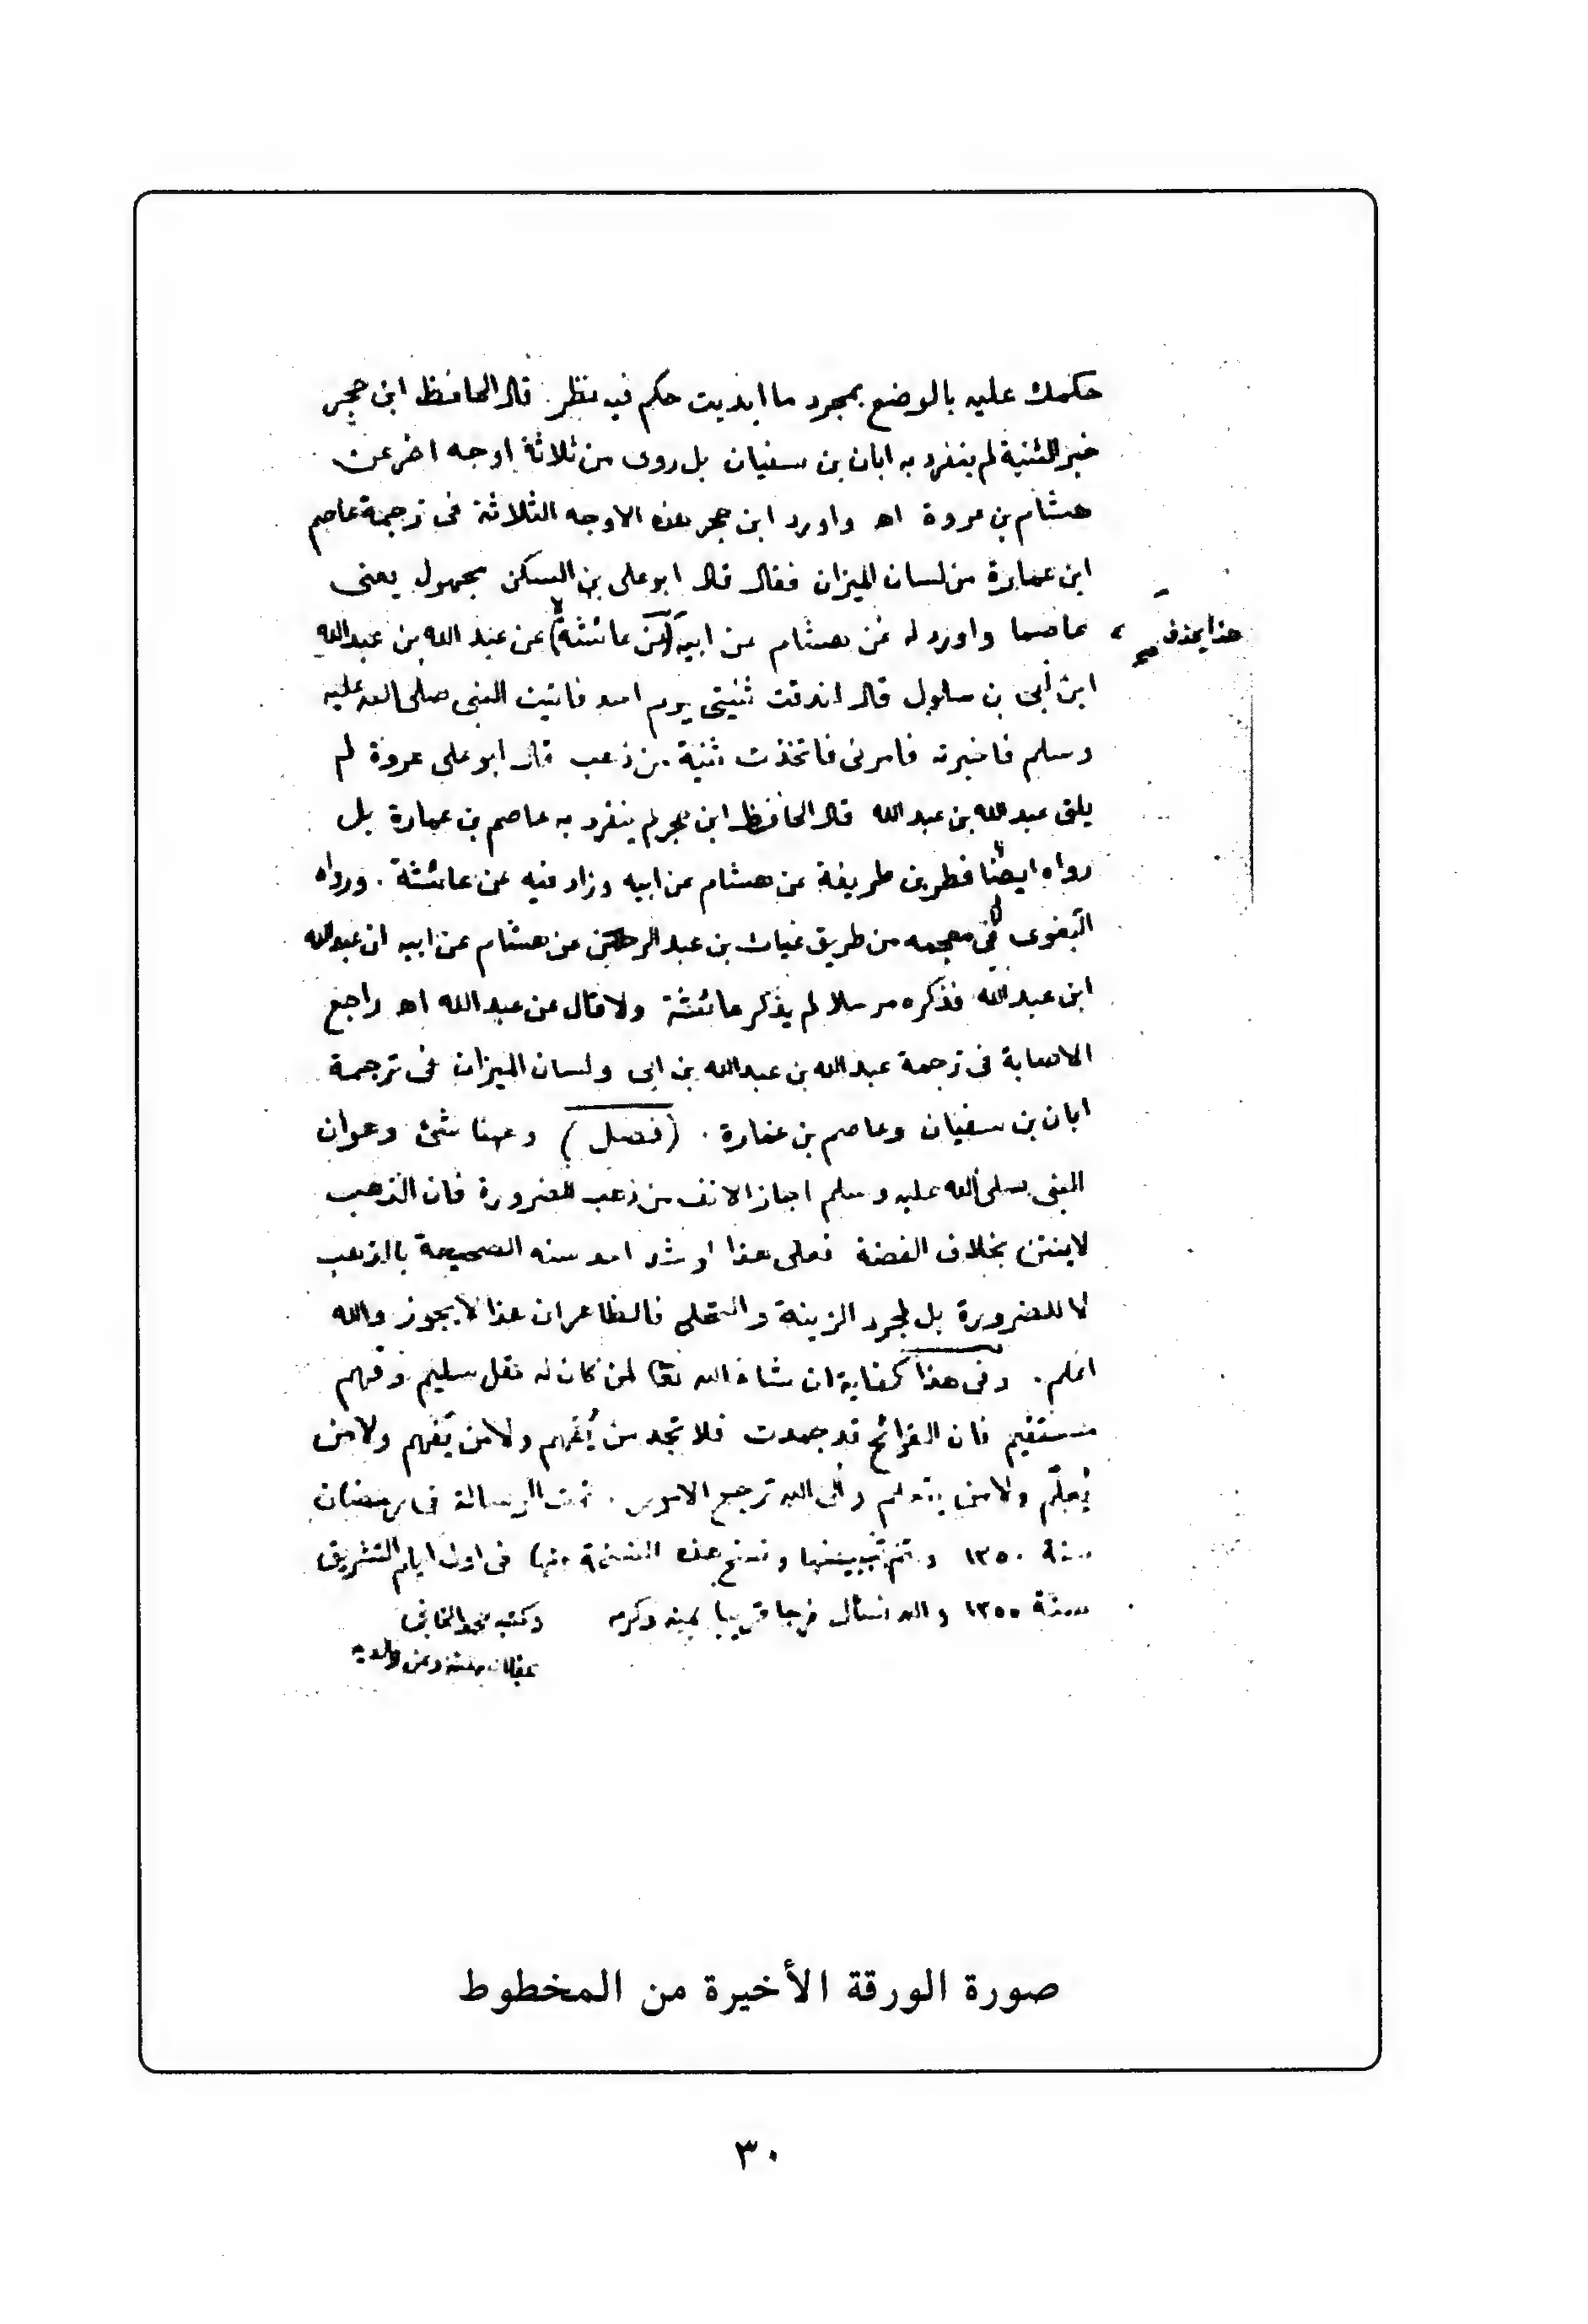 حكمك عليه بالوضع بمجرد ما ابديت حكم فيه نظر. قال الحافظ ابن حجر
خبر الثنية لم ينفرد به ابان بن سفيان بل روى من ثلاثة اوجه اخر عن
هشام بن عروة اهـ واورد ابن حجر هذه الاوجه الثلاثة فى ترجمة عاصم
ابن عمارة من لسان الميزان فقال قال ابو على بن السكن مجهول يعنى
عاصما واورد له عن هشام عن ابيه (عن عائشة) عن عبد الله بن عبدالله
هذا يحذف صح
ابن أبى بن سلول قال اندقت ثنيتى يوم احد فاتيت النبى صلى الله عليه
وسلم فاخبرته فامرنى فاتخذت ثنية من ذهب قال ابو على عروة لم
يلق عبد الله بن عبد الله قال الحافظ ابن حجر لم ينفرد به عاصم بن عمارة بل
رواه ايضا فطر بن طريفة عن هشام عن ابيه وزاد فيه عن عائشة. ورواه
البغوى فى معجمه من طريق غياث بن عبد الرحمن عن هشام عن ابيه ان عبدالله
ابن عبد الله فذكره مرسلا لم يذكر عائشة ولا قال عن عبد الله اهـ راجع
الاصابة فى ترجمة عبد الله بن عبدالله بن ابى ولسان الميزان فى ترجمة
ابان بن سفيان وعاصم بن عمارة. (فصل) وهنا شئ وهو ان
النبى صلى الله عليه وسلم اجاز الانف من ذهب للضرورة فان الذهب
لا ينتن بخلاف الفضة فعلى هذا لو شد احد سنه الصحيحة بالذهب
لا للضرورة بل لمجرد الزينة والتحلى فالظاهر ان هذا لا يجوز والله
اعلم. وفى هذا كفاية ان شاء الله تعا لمن كان له عقل سليم وفهم
مستقيم فان القرائح قد جمدت فلا تجد من يُفهم ولا من يَفهم ولا من
يُعلّم ولا من يتعلم والى الله ترجع الامور. تمت الرسالة فى رمضان
سنة ١٣٥٠ وتم تبييضها ونسخ هذه النسخة منها فى اول ايام التشريق
سنة ١٣٥٥ والله نسأل فرجا قريبا بمنه وكرمه وكتبه محمد
عفا الله عنه وعن والديه
صورة الورقة الأخيرة من المخطوط
٣٠